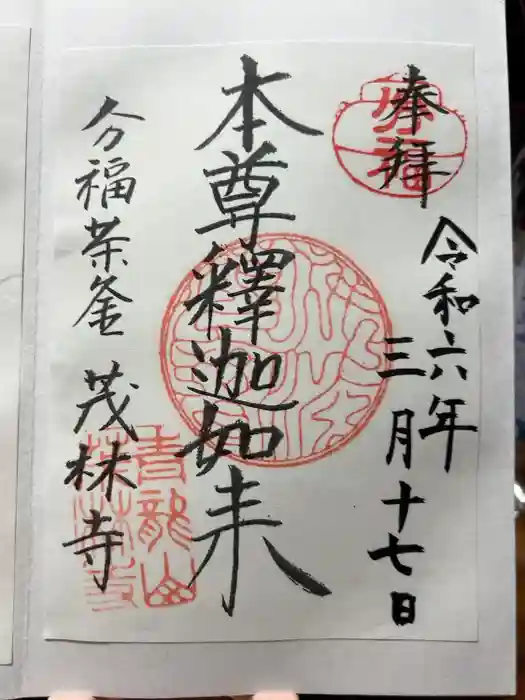 奉拝
令和六年
三月十七日
本尊釋迦如来
分福茶釜 茂林寺
分福
青龍山
茂林寺